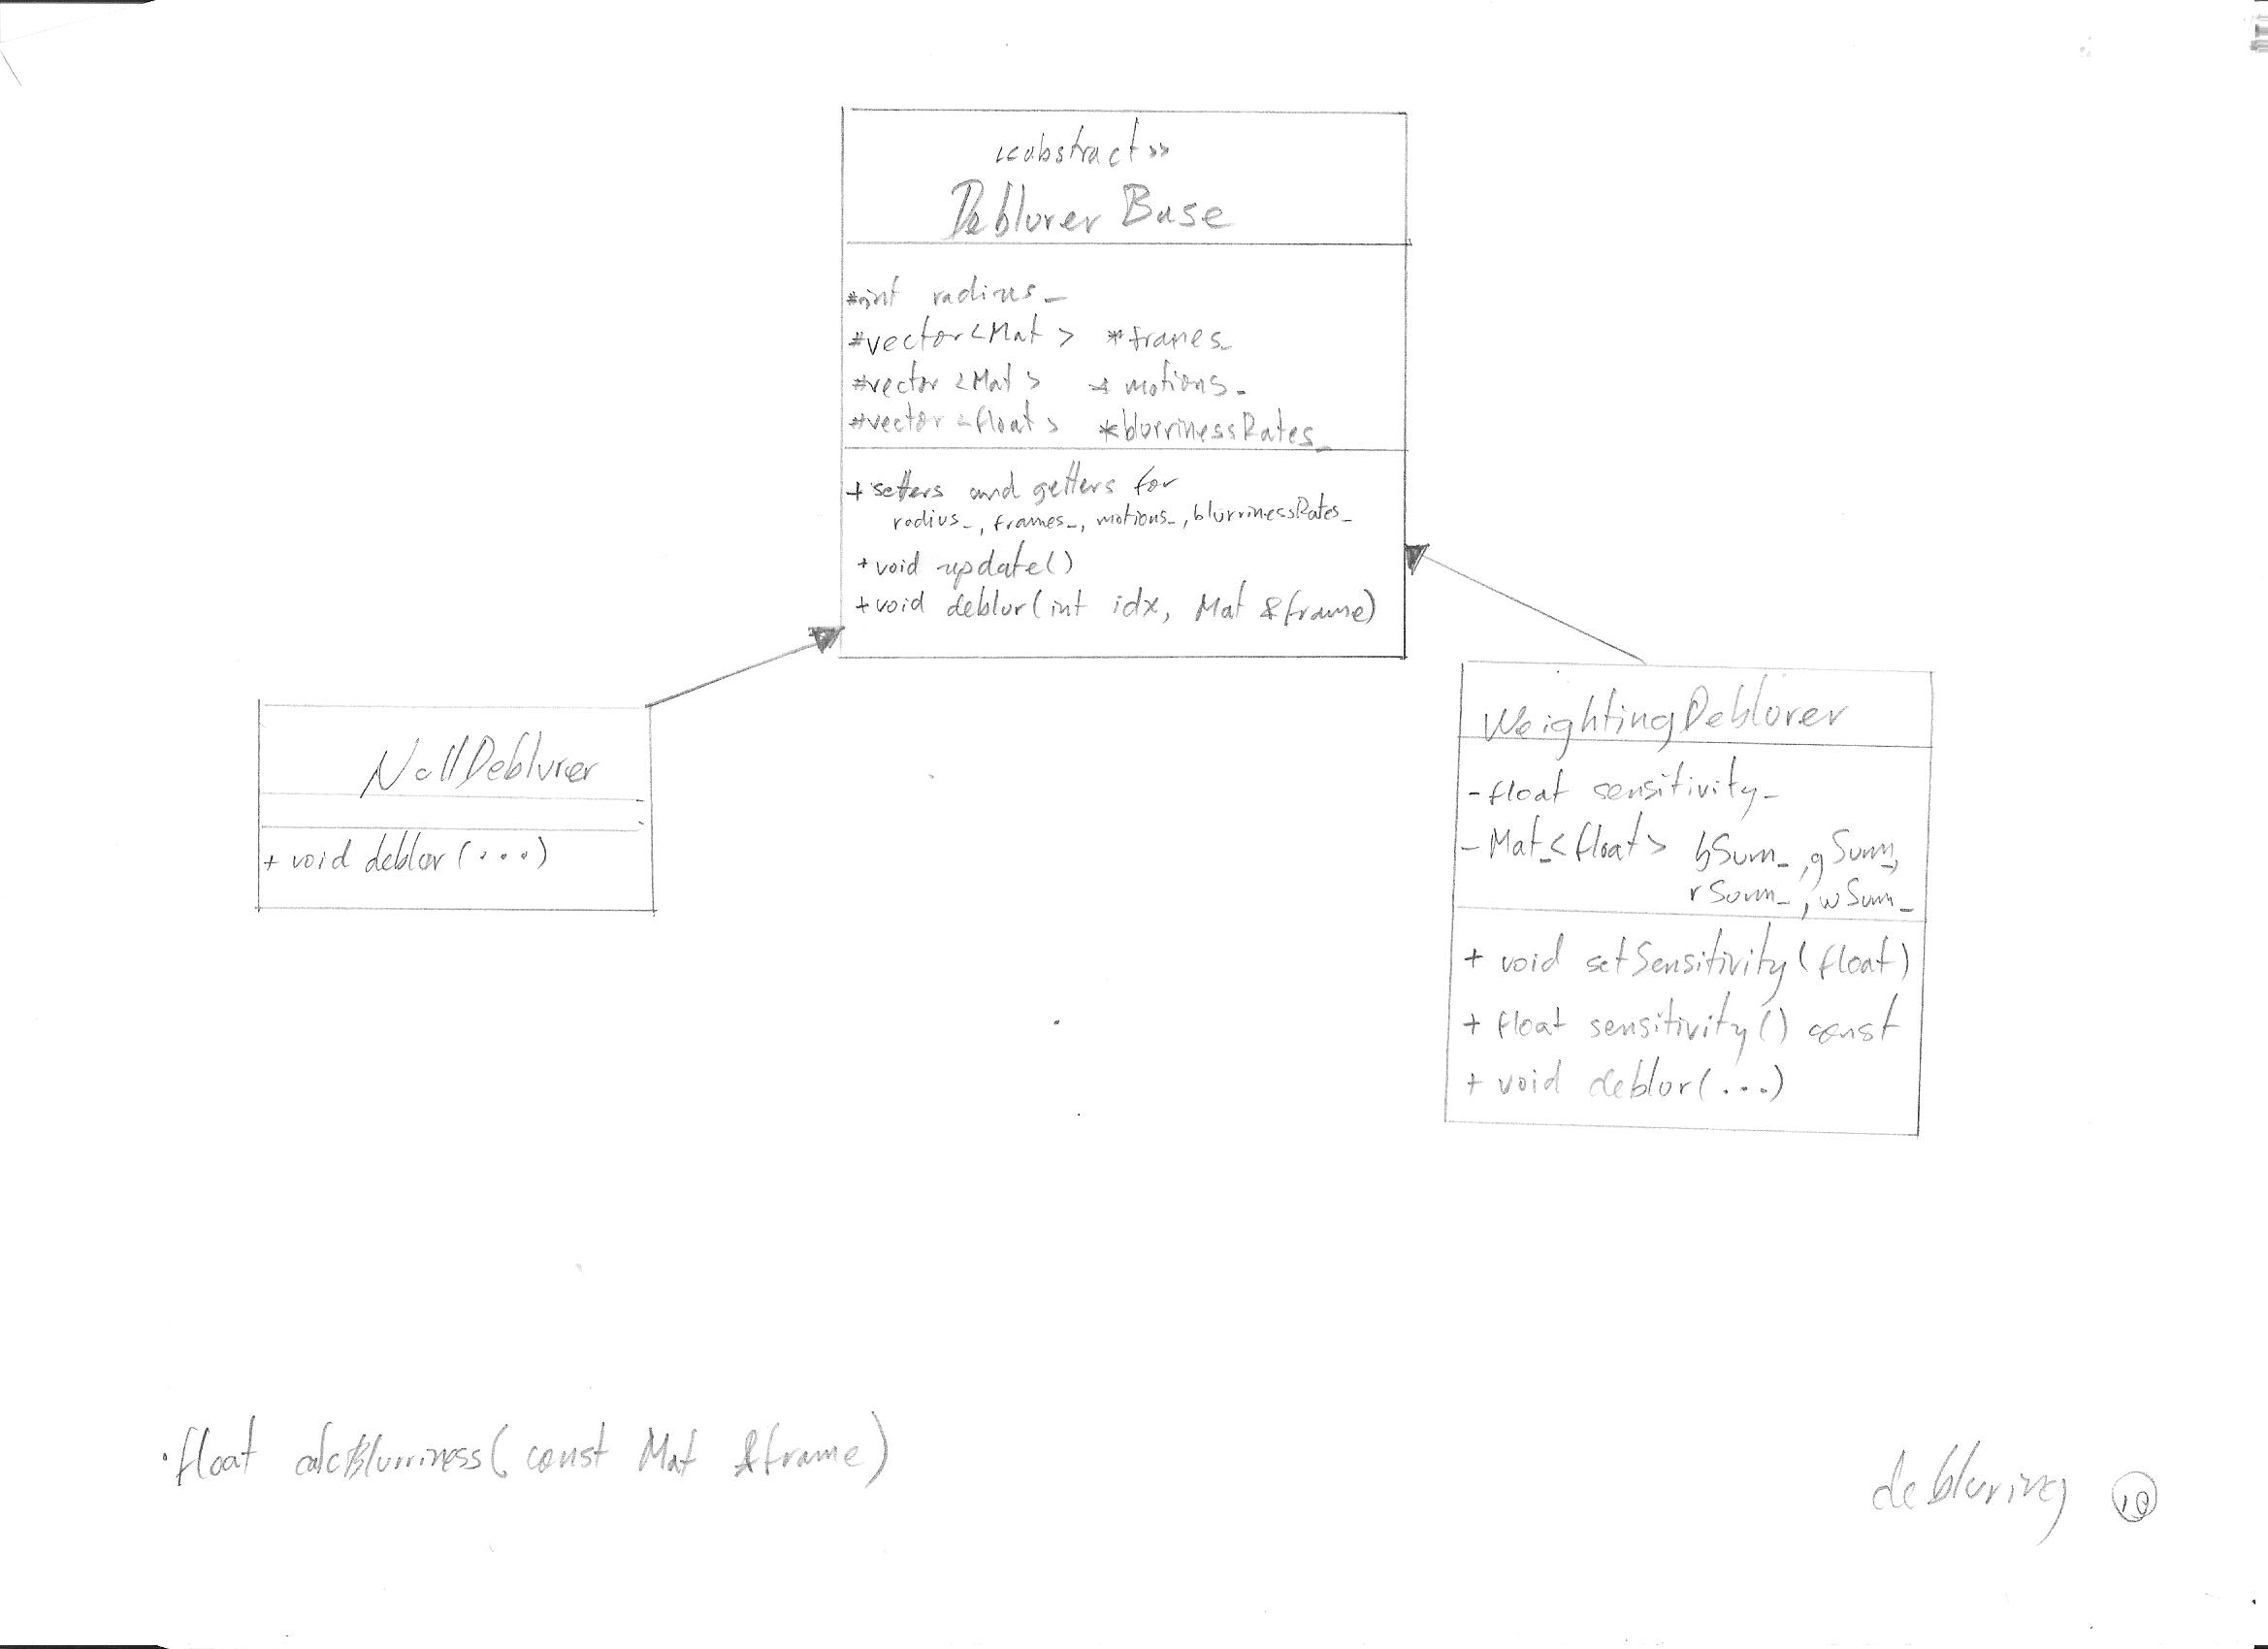 <<abstract>>
Deblurer Base
#int radius_
#vector<Mat> *frames_
#vector <Mat> * motions_
#vector <float> *blurrinessRates_
+ setters and getters for
radius_, frames_, motions_, blurrinessRates_
+ void update()
+ void deblur(int idx, Mat &frame)
NullDeblurer
+ void deblur (...)
WeightingDeblurer
- float sensitivity_
- Mat_<float> bSum_, gSum_,
rSum_, wSum_
+ void setSensitivity(float)
+ float sensitivity() const
+ void deblur(...)
·float calcBlurriness(const Mat &frame)
debluring 10